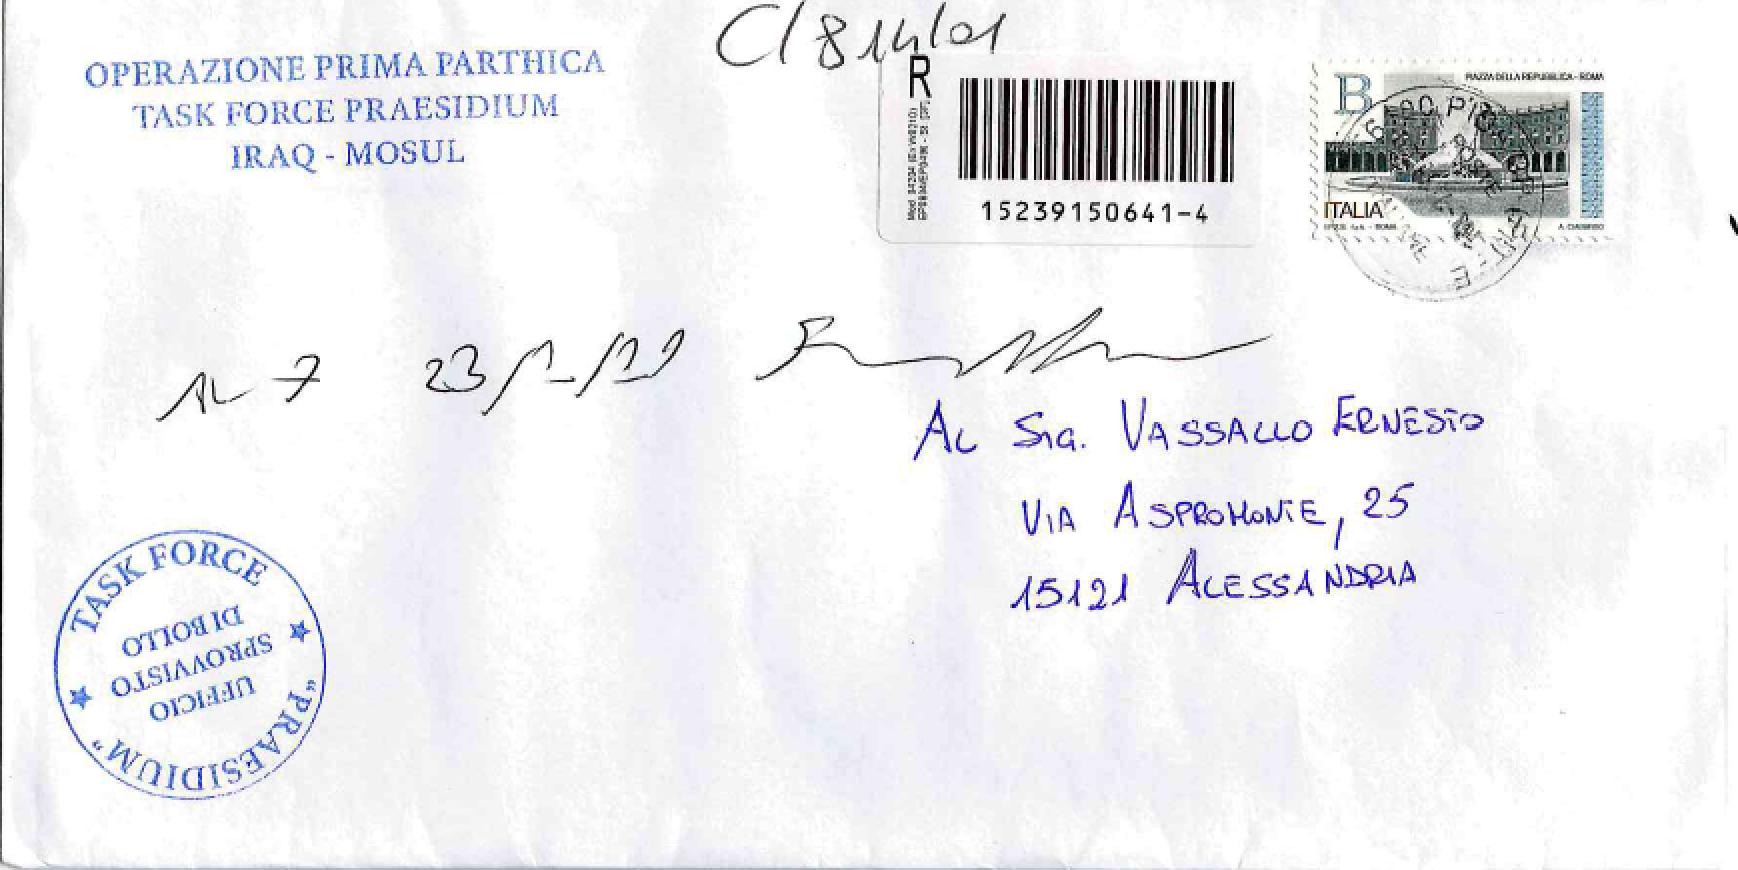 OPERAZIONE PRIMA PARTHICA
TASK FORCE PRAESIDIUM
IRAQ - MOSUL
R
15239150641-4
B
PIAZZA DELLA REPUBBLICA - ROMA
ITALIA
AL 7 23/1/
AL SIG. VASSALLO ERNESTO
VIA ASPROMONTE, 25
15121 ALESSANDRIA
TASK FORCE
"PRAESIDIUM"
UFFICIO
SPROVVISTO
DI BOLLO